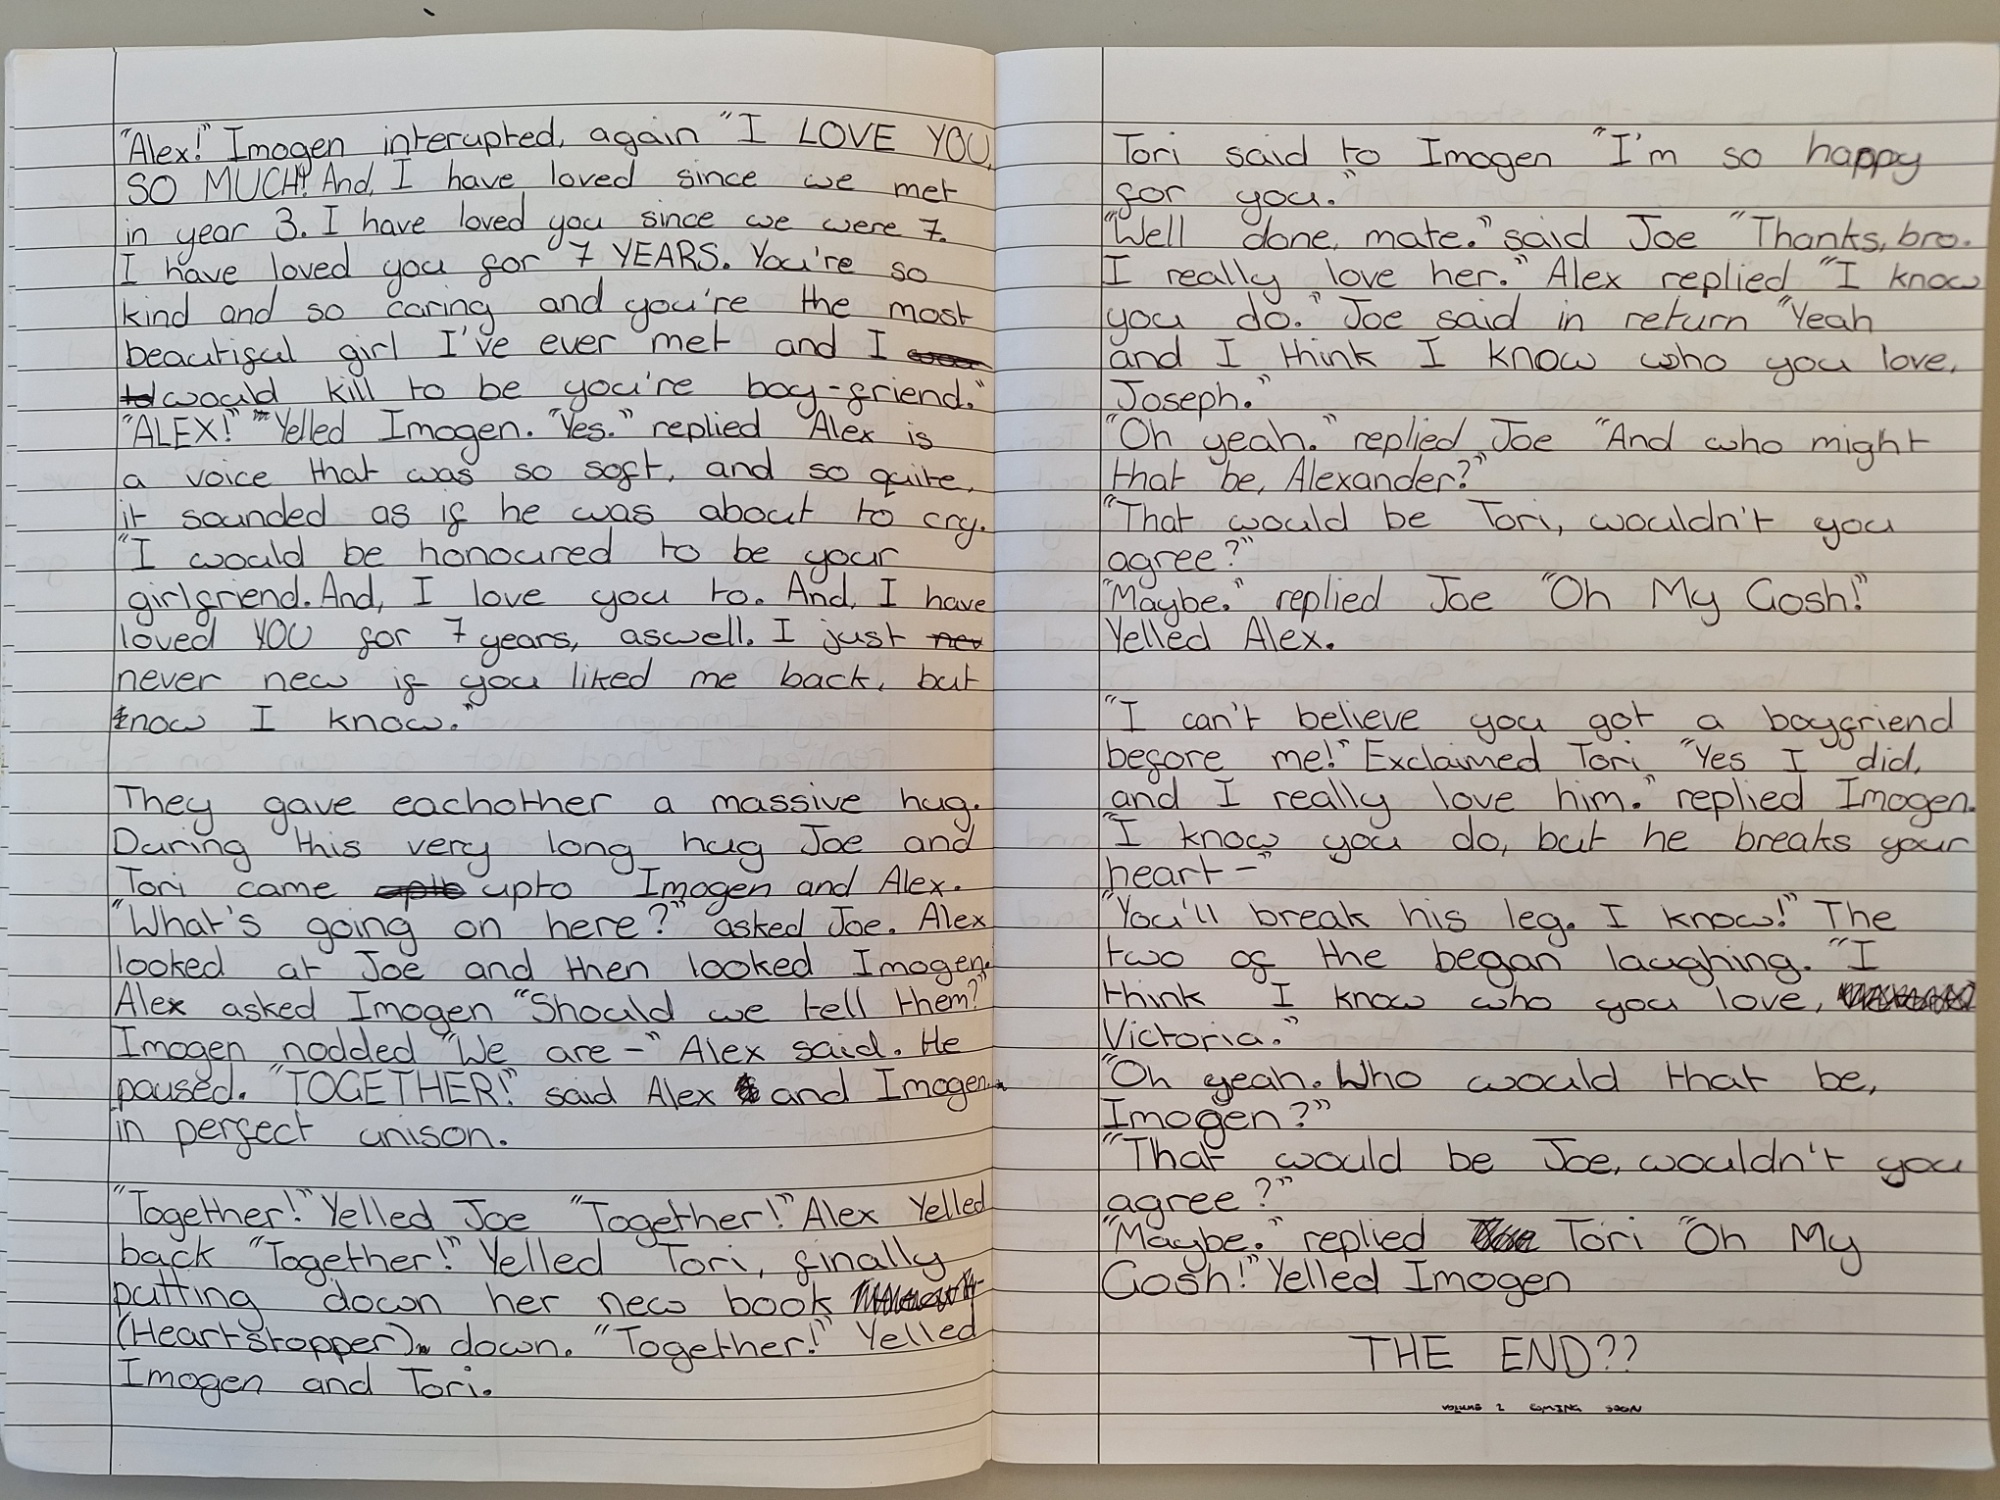 "Alex!" Imogen interupted, again "I LOVE YOU
SO MUCH! And, I have loved since we met
in year 3. I have loved you since we were 7.
I have loved you for 7 YEARS. You're so
kind and so caring and you're the most
beautiful girl I've ever met and I
would kill to be you're boy-friend."
"ALEX!" Yelled Imogen. "Yes." replied Alex is
a voice that was so soft, and so quite,
it sounded as if he was about to cry.
"I would be honoured to be your
girlfriend. And, I love you to. And, I have
loved YOU for 7 years, aswell. I just
never new if you liked me back, but
know I know."
They gave eachother a massive hug.
During this very long hug Joe and
Tori came upto Imogen and Alex.
"What's going on here?" asked Joe. Alex
looked at Joe and then looked Imogen.
Alex asked Imogen "Should we tell them?"
Imogen nodded "We are -" Alex said. He
paused. "TOGETHER!" said Alex and Imogen
in perfect unison.
"Together!" Yelled Joe "Together!" Alex Yelled
back "Together!" Yelled Tori, finally
putting down her new book
(Heartstopper) down. "Together!" Yelled
Imogen and Tori.
Tori said to Imogen "I'm so happy
for you."
"Well done, mate." said Joe "Thanks, bro.
I really love her." Alex replied "I know
you do." Joe said in return "Yeah
and I think I know who you love,
Joseph."
"Oh yeah." replied Joe "And who might
that be, Alexander?"
"That would be Tori, wouldn't you
agree?"
"Maybe." replied Joe "Oh My Gosh!"
Yelled Alex.
"I can't believe you got a boyfriend
before me!" Exclaimed Tori "Yes I did,
and I really love him." replied Imogen.
"I know you do, but he breaks your
heart -"
"You'll break his leg. I know!" The
two of the began laughing. "I
think I know who you love,
Victoria."
"Oh yeah. Who would that be,
Imogen?"
"That would be Joe, wouldn't you
agree?"
"Maybe." replied Tori "Oh My
Gosh!" Yelled Imogen
THE END??
VOLUME 2 COMING SOON